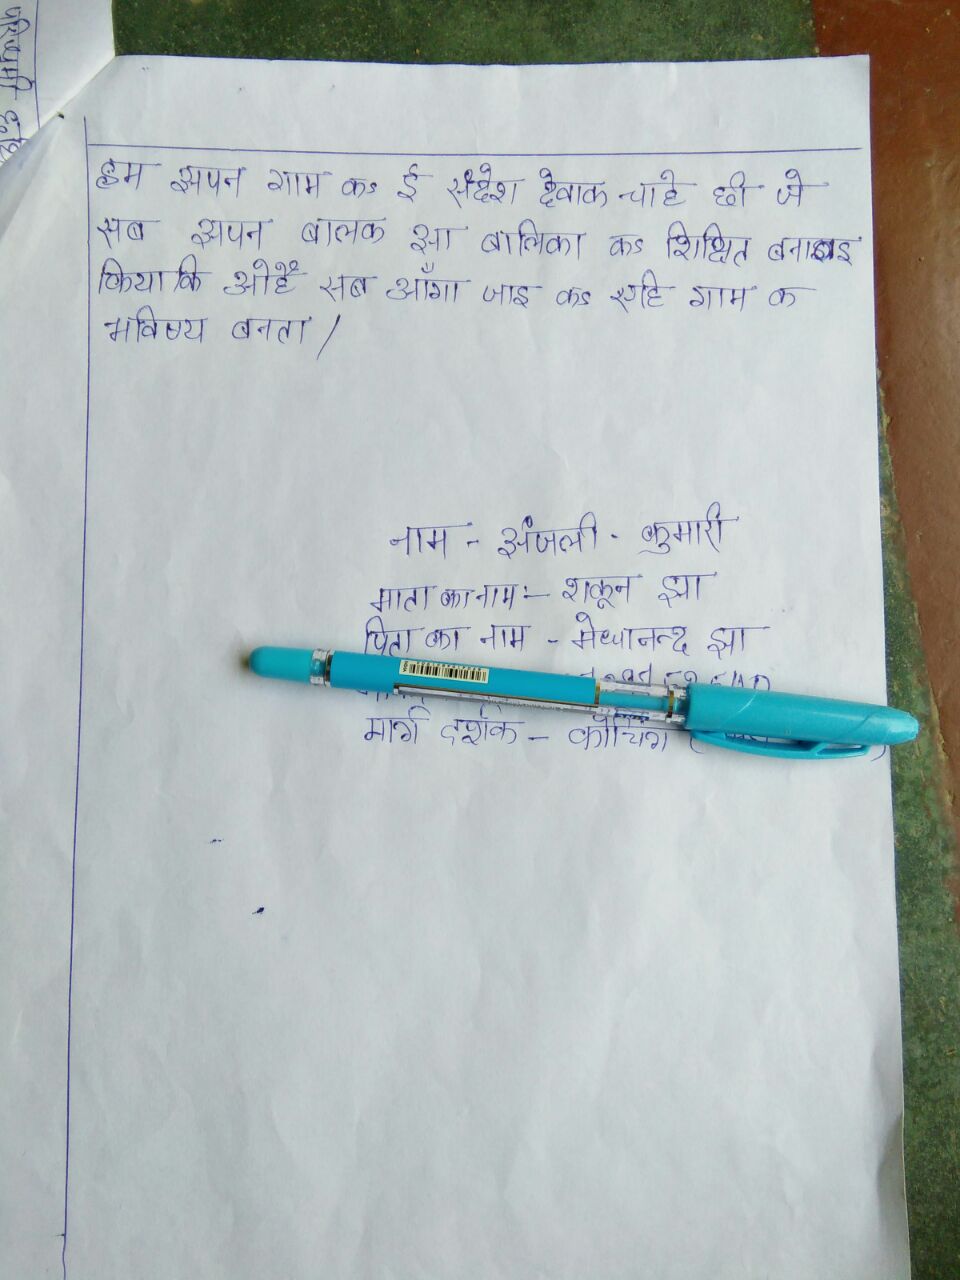 हम अपन गाम कऽ ई संदेश देवाक चाहे छी जे
सब अपन बालक आ बालिका कऽ शिक्षित बनाबइ
कियाकि ओहैं सब आँगा जाइ कऽ एहि गाम क
भविष्य बनता /
नाम - अंजली - कुमारी
माता का नाम :- शकून झा
पिता का नाम - मेधानन्द झा
मार्ग दर्शक - कोचिंग (